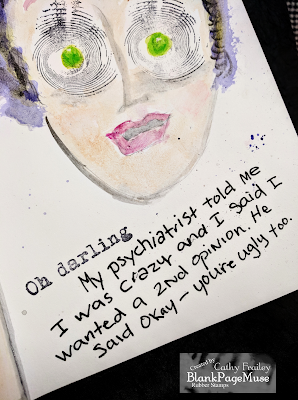 Oh darling
My psychiatrist told me
I was crazy and I said I
wanted a 2nd opinion. He
said okay - you're ugly too.
Created by
Cathy Frailey
BlankPageMuse
Rubber Stamps